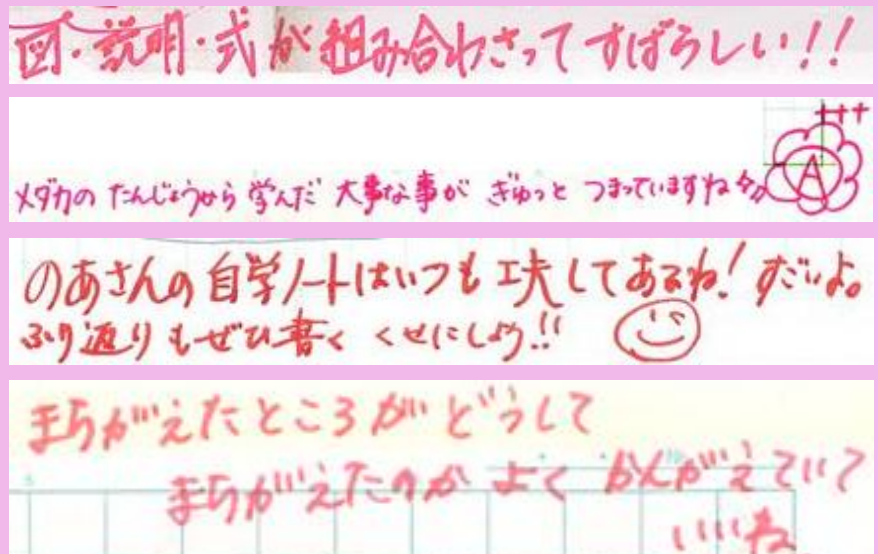 図・説明・式が組み合わさってすばらしい!!
+++
A
メダカのたんじょうから学んだ 大事な事が ぎゅっと つまっていますね
のあさんの自学ノートはいつも工夫してあるね!すごいよ。
ふり返りもぜひ書くくせにしよう!!
まちがえたところがどうして
まちがえたのか よく かんがえていて
いいね